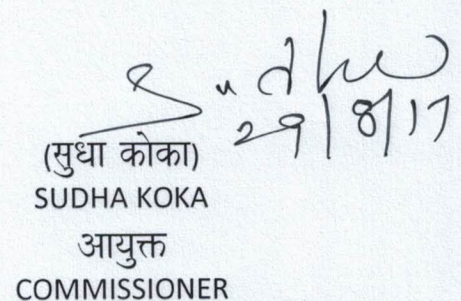 Sudha
29/8/17
(सुधा कोका)
SUDHA KOKA
आयुक्त
COMMISSIONER